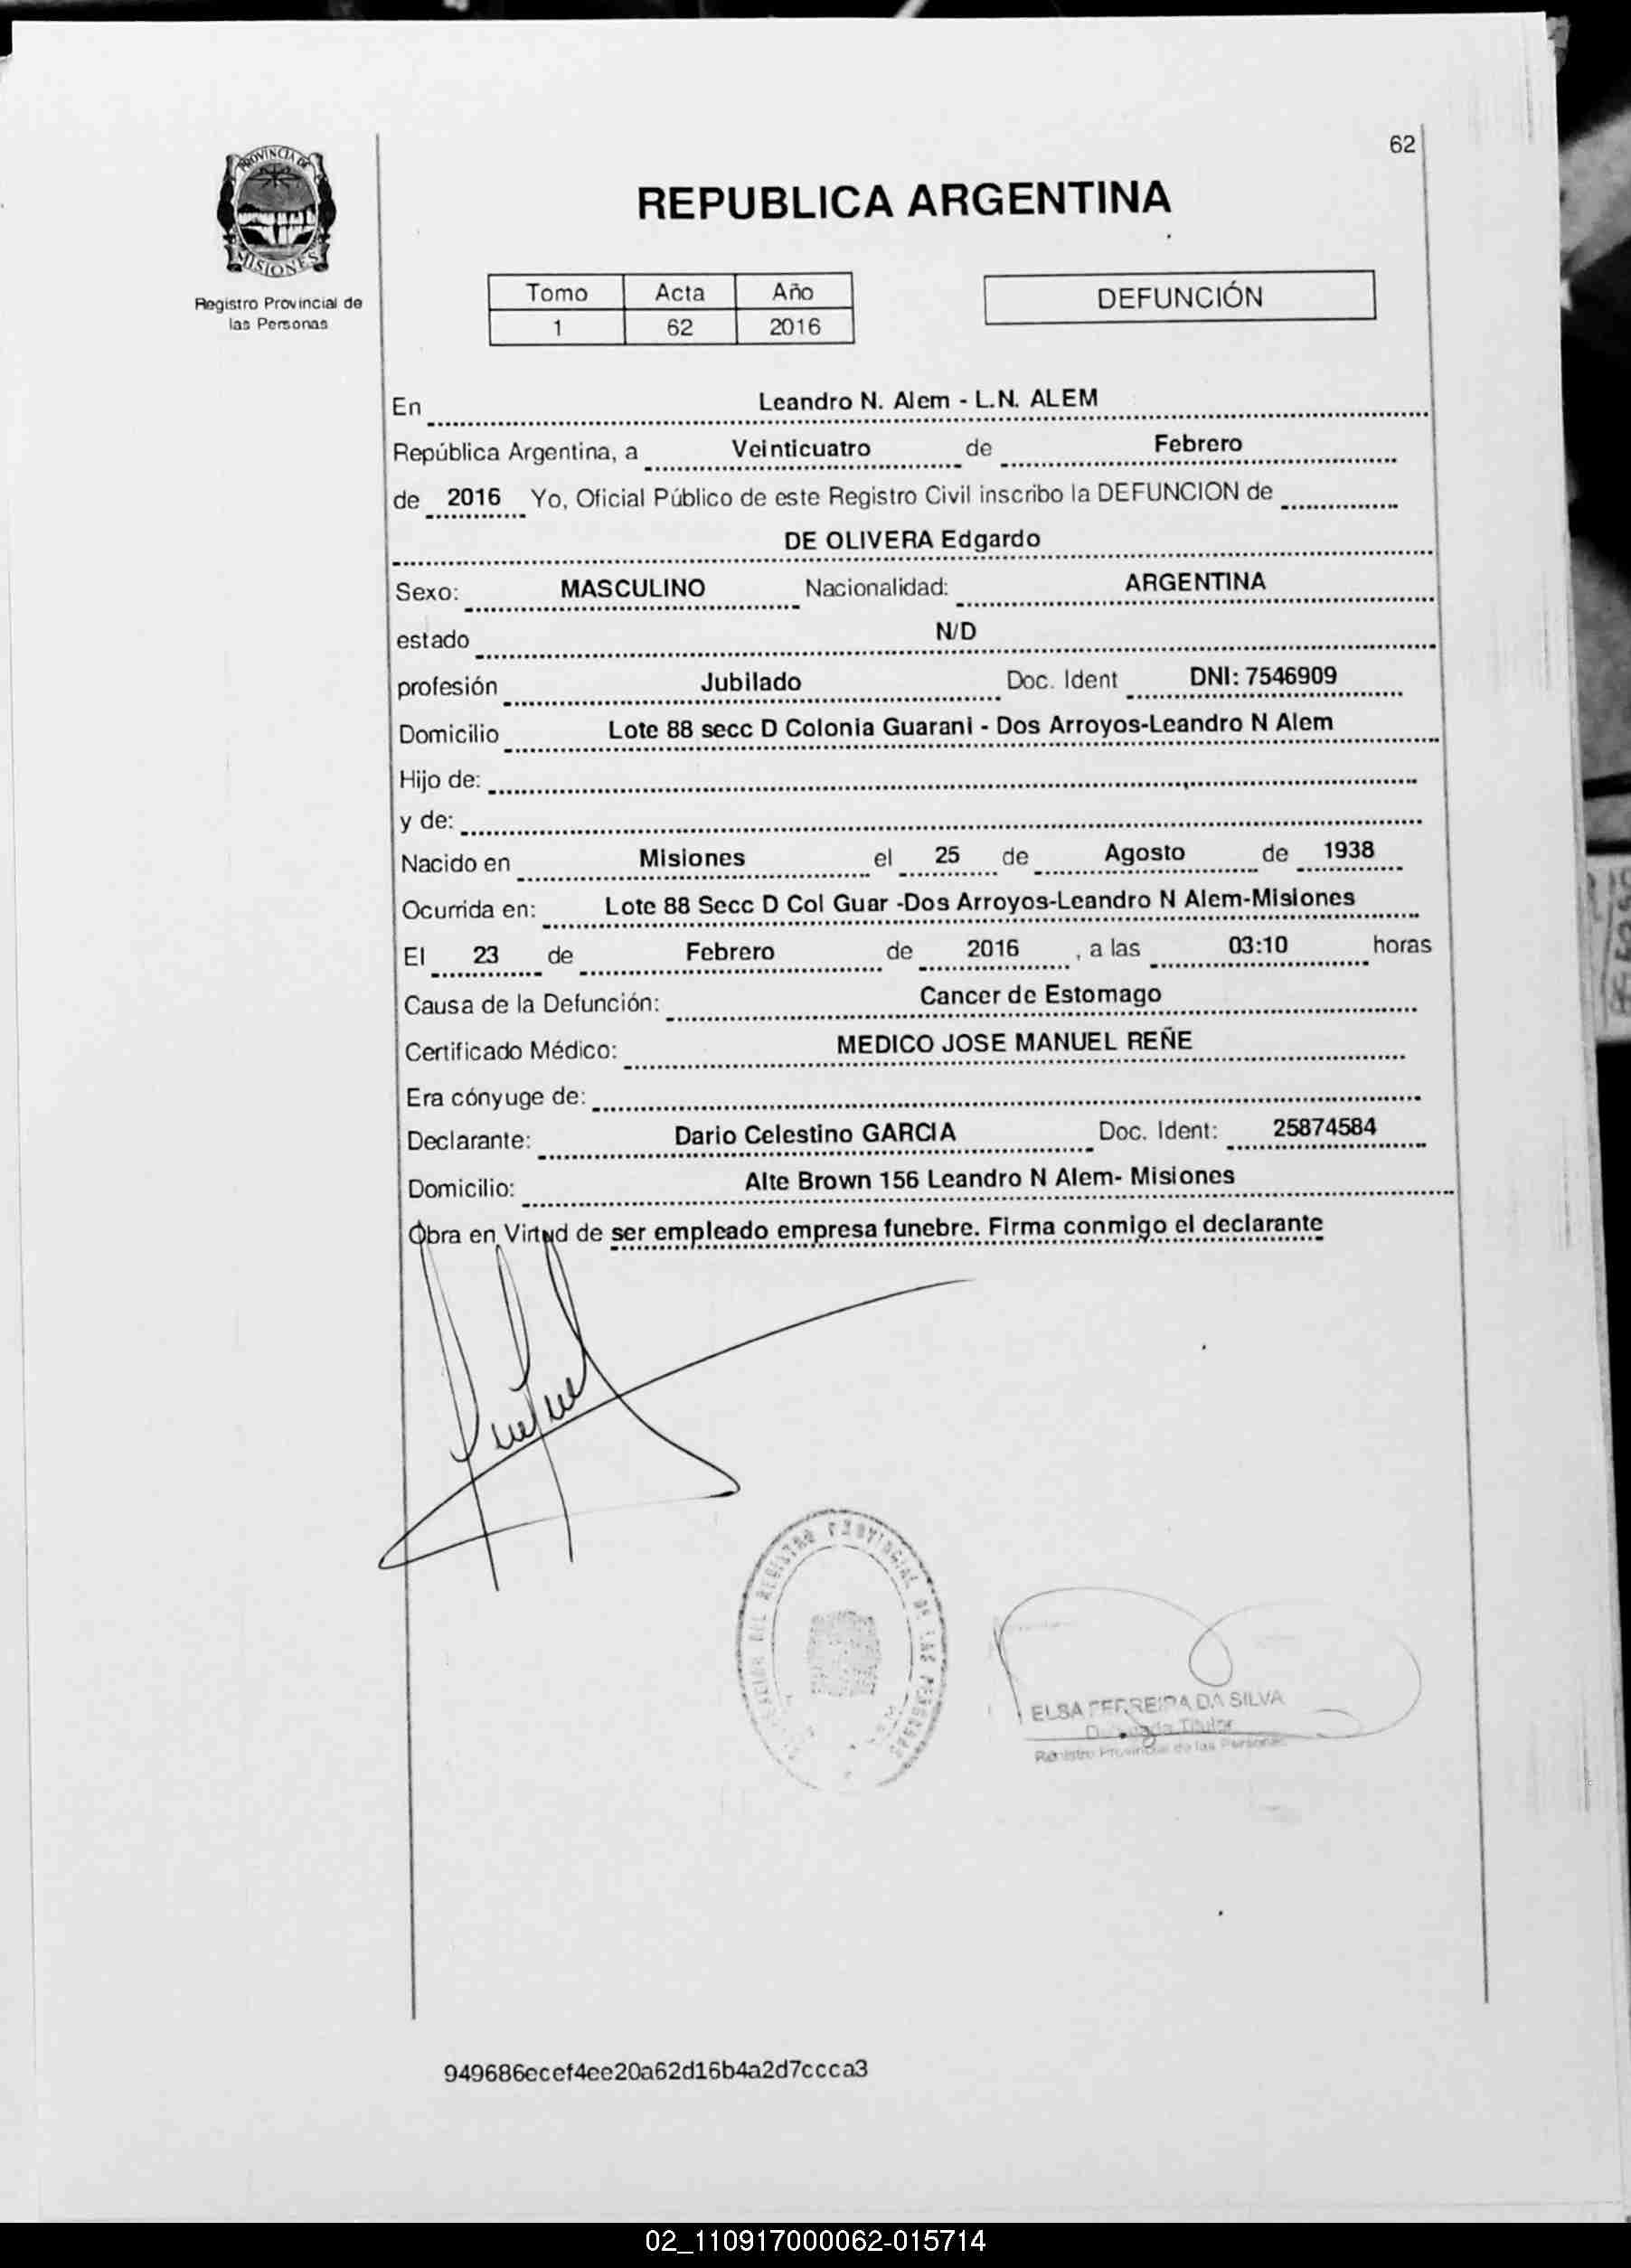 62
PROVINCIA DE
MISIONES
Registro Provincial de
las Personas
REPUBLICA ARGENTINA
Tomo Acta Año
1 62 2016
DEFUNCIÓN
En Leandro N. Alem - L.N. ALEM
República Argentina, a Veinticuatro de Febrero
de 2016 Yo, Oficial Público de este Registro Civil inscribo la DEFUNCION de
DE OLIVERA Edgardo
Sexo: MASCULINO Nacionalidad: ARGENTINA
estado N/D
profesión Jubilado Doc. Ident DNI: 7546909
Domicilio Lote 88 secc D Colonia Guarani - Dos Arroyos-Leandro N Alem
Hijo de:
y de:
Nacido en Misiones el 25 de Agosto de 1938
Ocurrida en: Lote 88 Secc D Col Guar -Dos Arroyos-Leandro N Alem-Misiones
El 23 de Febrero de 2016 , a las 03:10 horas
Causa de la Defunción: Cancer de Estomago
Certificado Médico: MEDICO JOSE MANUEL REÑE
Era cónyuge de:
Declarante: Dario Celestino GARCIA Doc. Ident: 25874584
Domicilio: Alte Brown 156 Leandro N Alem- Misiones
Obra en Virtud de ser empleado empresa funebre. Firma conmigo el declarante
DEL REGISTRO PROVINCIAL DE LAS PERSONAS
ELSA FERREIRA DA SILVA
Titular
Registro Provincial de las Personas
949686ecef4ee20a62d16b4a2d7ccca3
02_110917000062-015714